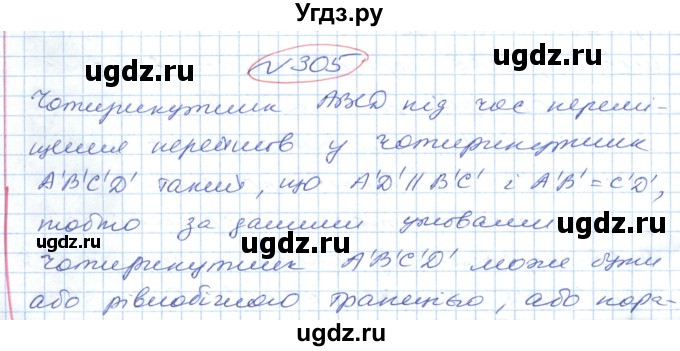 Угдз.ру
√305
ugdz.ru ugdz.ru
Чотирикутник ABCD під час перемі-
щення перейшов у чотирикутник
A'B'C'D' такий, що A'D' ∥ B'C' і A'B' = C'D',
тобто за даними умовами
чотирикутник A'B'C'D' може бути
або рівнобічною трапецією, або пара-
ugdz.ru ugdz.ru
ugdz.ru ugdz.ru
ugdz.ru ugdz.ru